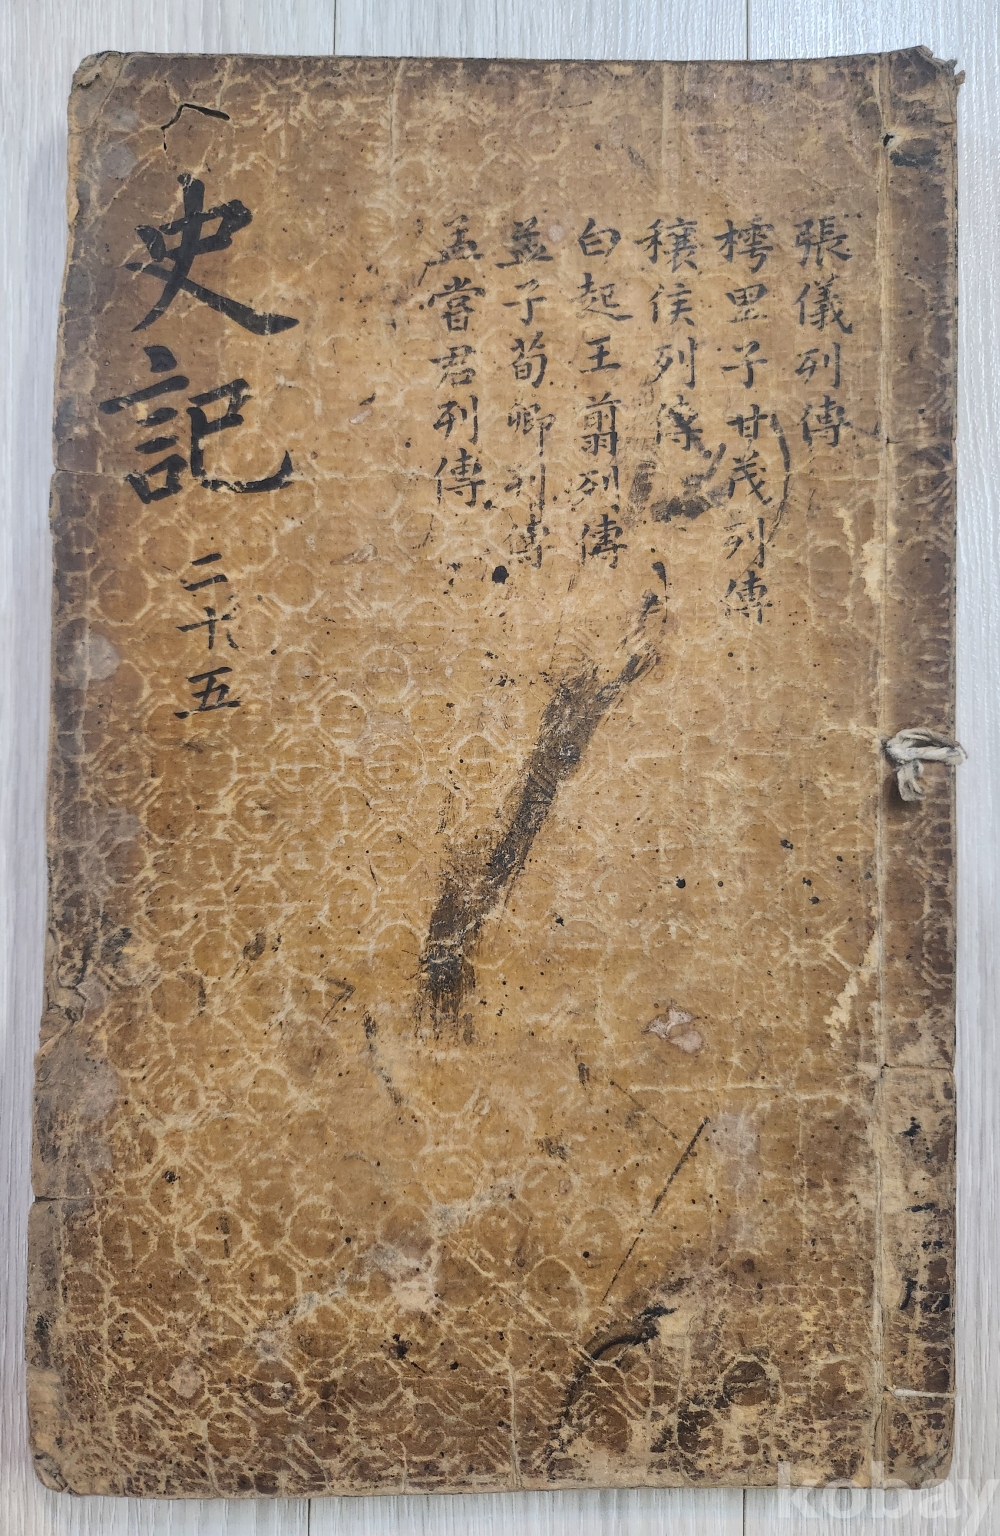 張儀列傳
樗里子甘茂列傳
穰侯列傳
白起王翦列傳
孟子荀卿列傳
孟嘗君列傳
史記
二十五
kobay